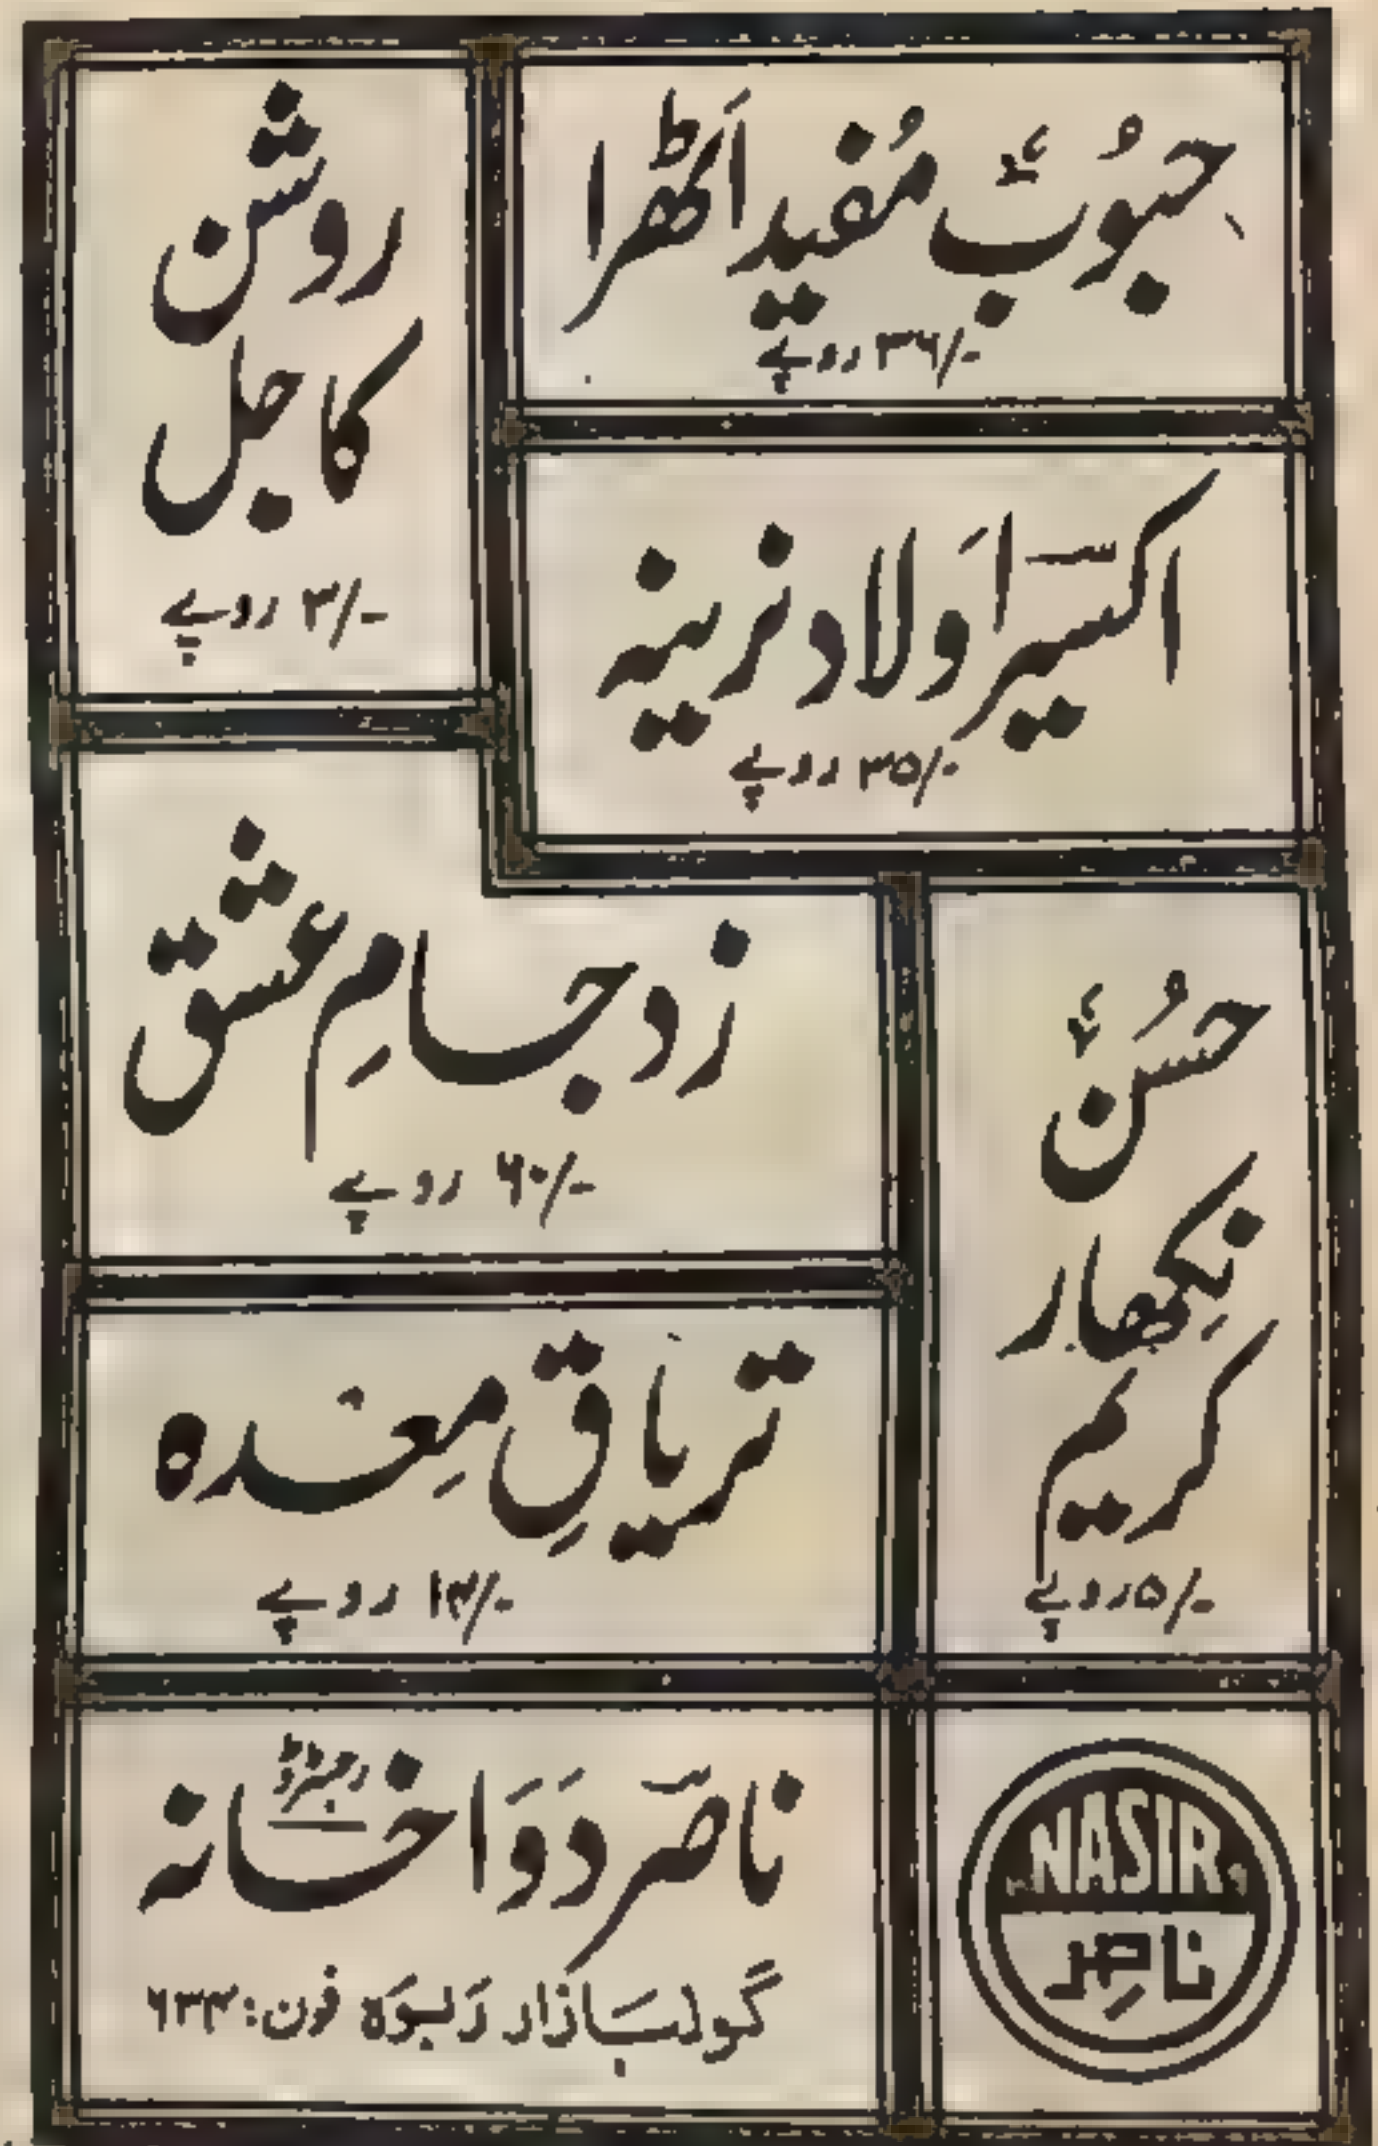 حبوبِ مُفید اَٹھرا
۳۶/- روپے
روشن
کاجل
۳/- روپے
اکسیر اَولاد نرینہ
۳۵/- روپے
زد جامِ عشق
۶۰/- روپے
حُسن
نِکھار
کریم
۵/- روپے
تریاقِ مِعدہ
روپے
ناصر دَوَاخانہ رجسٹرڈ
گولبازار رَبوَہ فون: ۶۳۴
NASIR
ناصِر